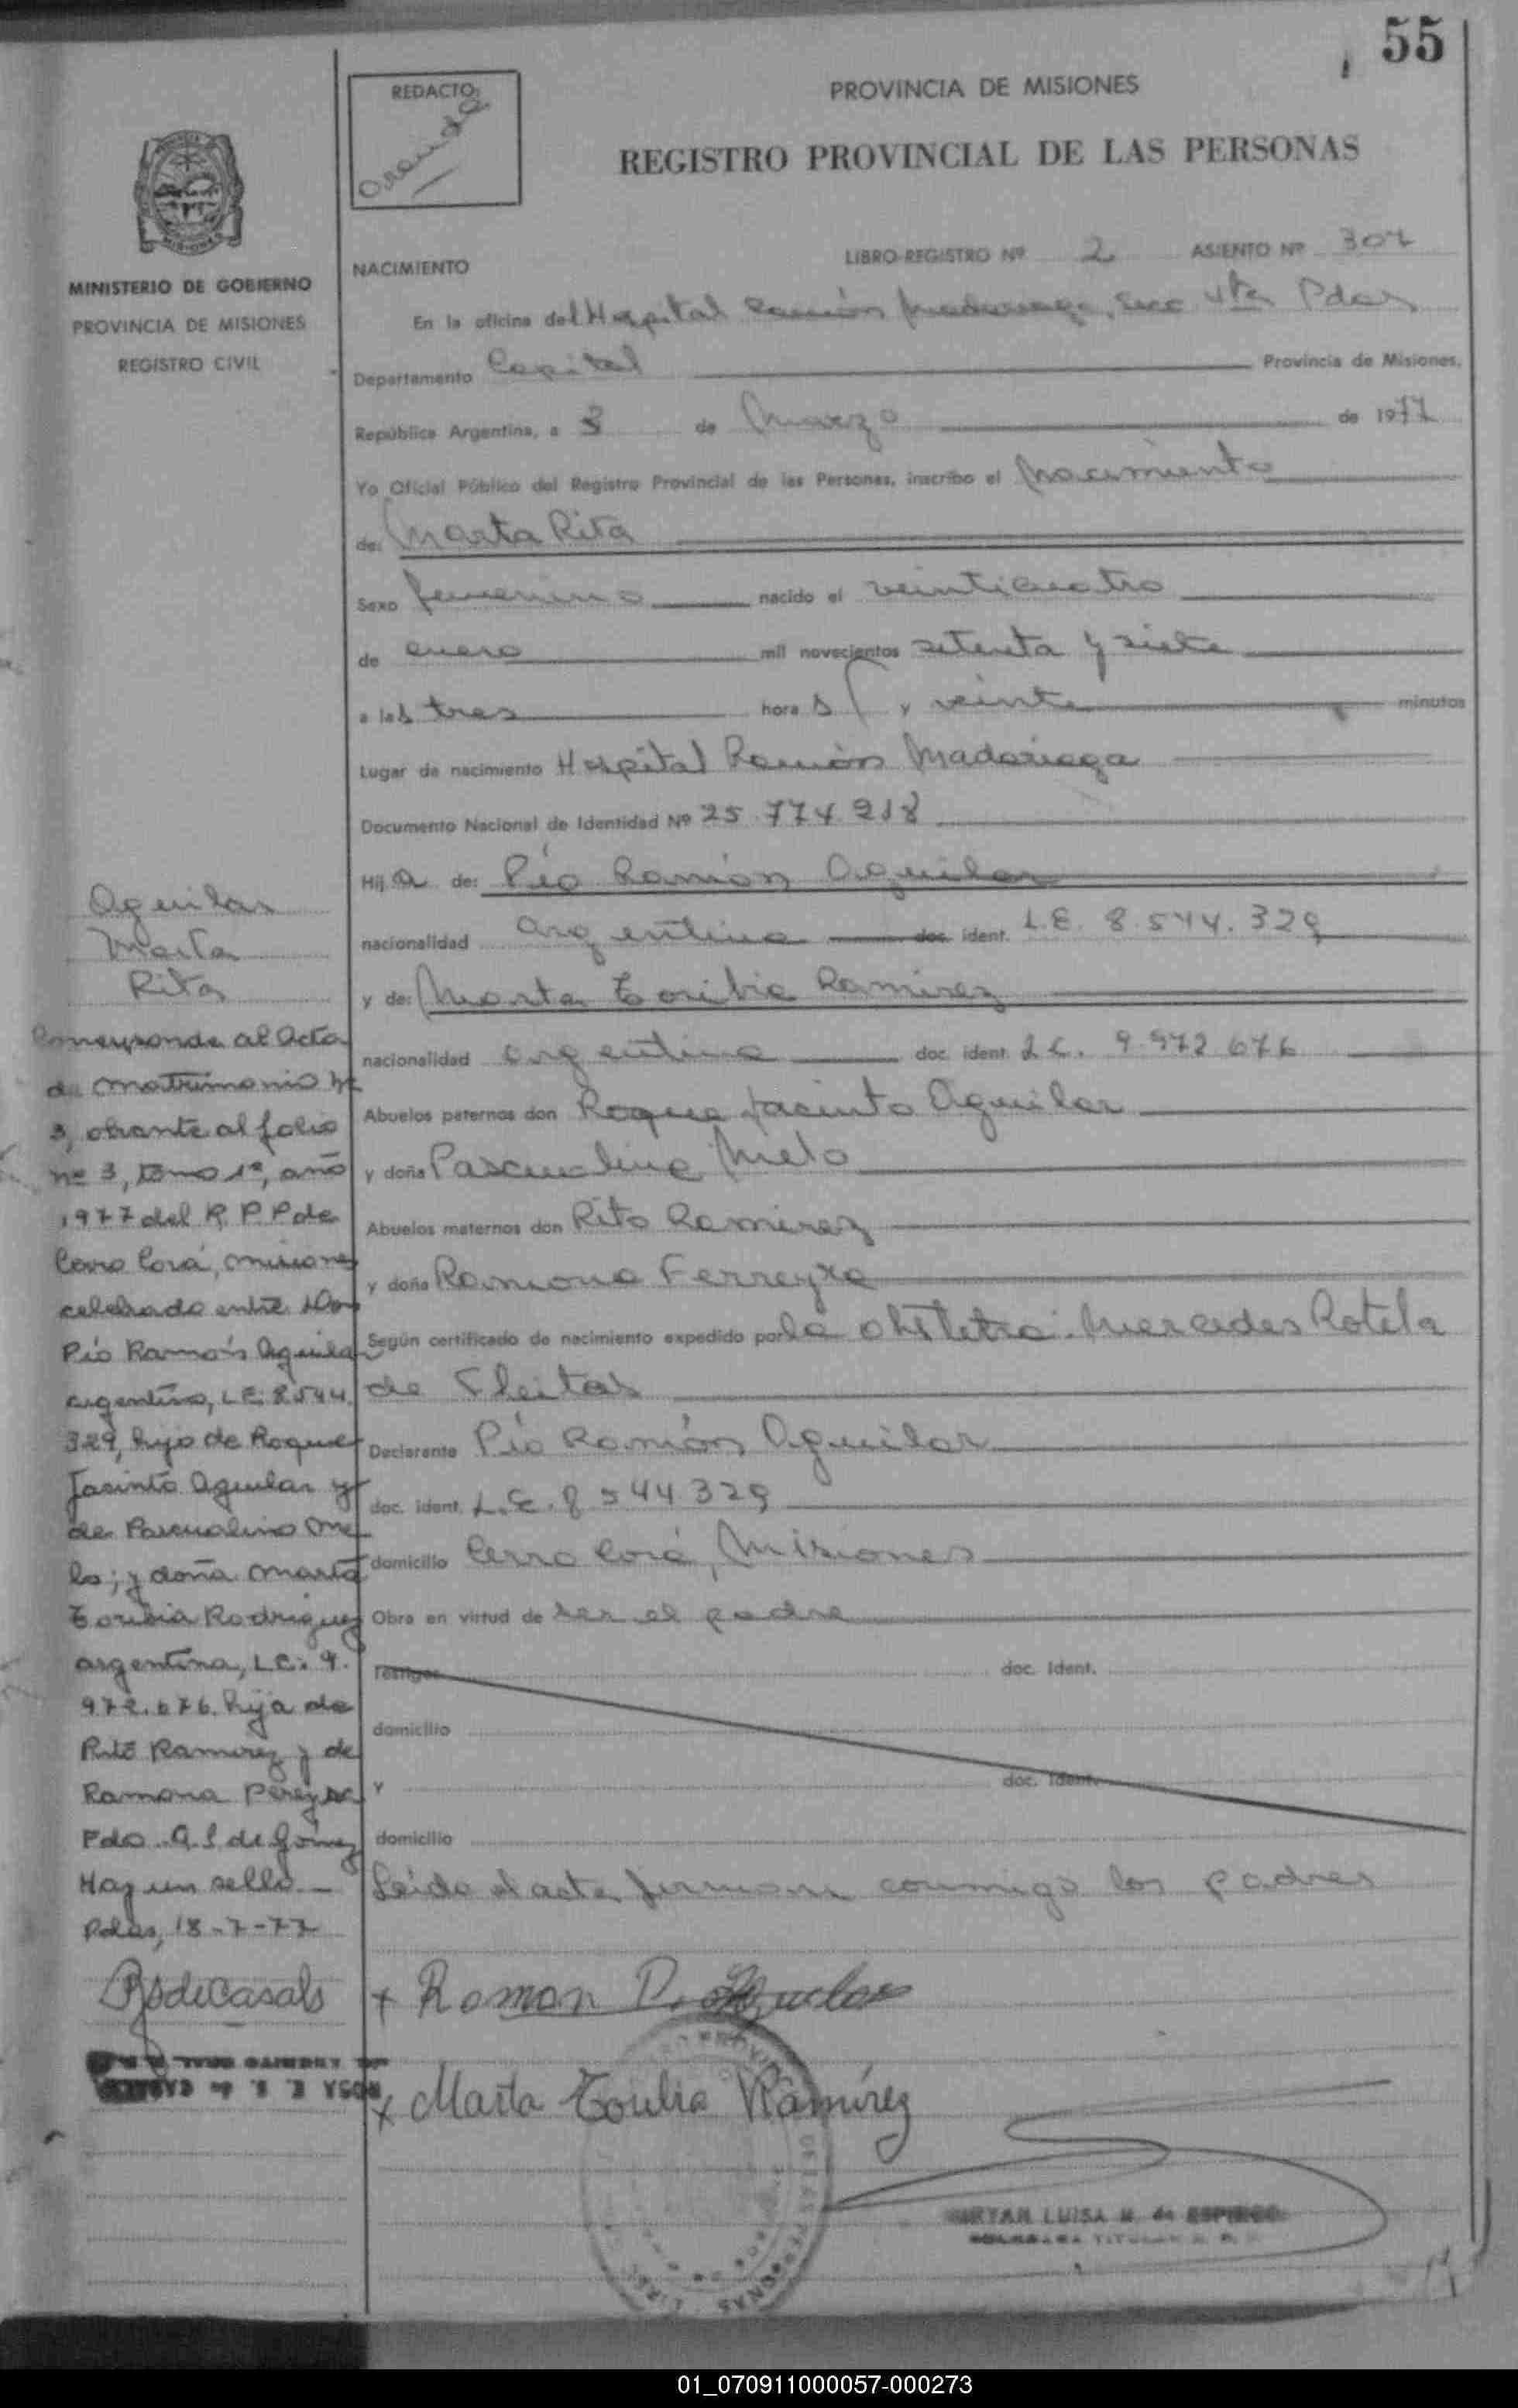 55
REDACTO:
PROVINCIA DE MISIONES
REGISTRO PROVINCIAL DE LAS PERSONAS
MISIONES
MINISTERIO DE GOBIERNO
PROVINCIA DE MISIONES
REGISTRO CIVIL
NACIMIENTO
LIBRO-REGISTRO Nº 2 ASIENTO Nº 307
En la oficina del Hospital Ramón Madariaga, Secc 4ta Pdas
Departamento Capital Provincia de Misiones.
República Argentina, a 3 de Marzo de 1977
Yo Oficial Público del Registro Provincial de las Personas, inscribo el Nacimiento
de: Marta Rita
Sexo femenino nacido el veinticuatro
de enero mil novecientos setenta y siete
a las tres horas y veinte minutos
Lugar de nacimiento Hospital Ramón Madariaga
Documento Nacional de Identidad Nº 25.774.218
Hija de: Pío Ramón Aguilar
nacionalidad argentina doc. ident. L.E. 8.544.329
y de: Marta Toribia Ramirez
nacionalidad argentina doc. ident. L.C. 9.972.676
Abuelos paternos don Roque Jacinto Aguilar
y doña Pascualina Melo
Abuelos maternos don Rito Ramirez
y doña Ramona Ferreyra
Según certificado de nacimiento expedido por la obstetra: Mercedes Rotela
de Fleitas
Declarante Pío Ramón Aguilar
doc. ident. L.E. 8 544 329
domicilio Cerro Corá, Misiones
Obra en virtud de ser el padre
Testigos doc. Ident.
domicilio
Y doc. Ident.
domicilio
Leída el acta firman conmigo los padres
Aguilar
Marta
Rita
Corresponde al Acta
de matrimonio Nº
3, obrante al folio
nº 3, tomo 1º, año
1977 del R. P. P de
Cerro Corá, Misiones
celebrado entre Don
Pío Ramón Aguilar
argentino, L.E: 8.544.
329, hijo de Roque
Jacinto Aguilar y
de Pascualina Me
lo; y doña Marta
Toribia Rodriguez
argentina, L.C: 9.
972.676. hija de
Rito Ramirez y de
Ramona Pereyra
Fdo. A. S de Gómez
Hay un sello.-
Pdas, 18-7-77
+ Ramon P. Aguilar
x Marta Toribia Ramírez
LUISA M. de
01_070911000057-000273